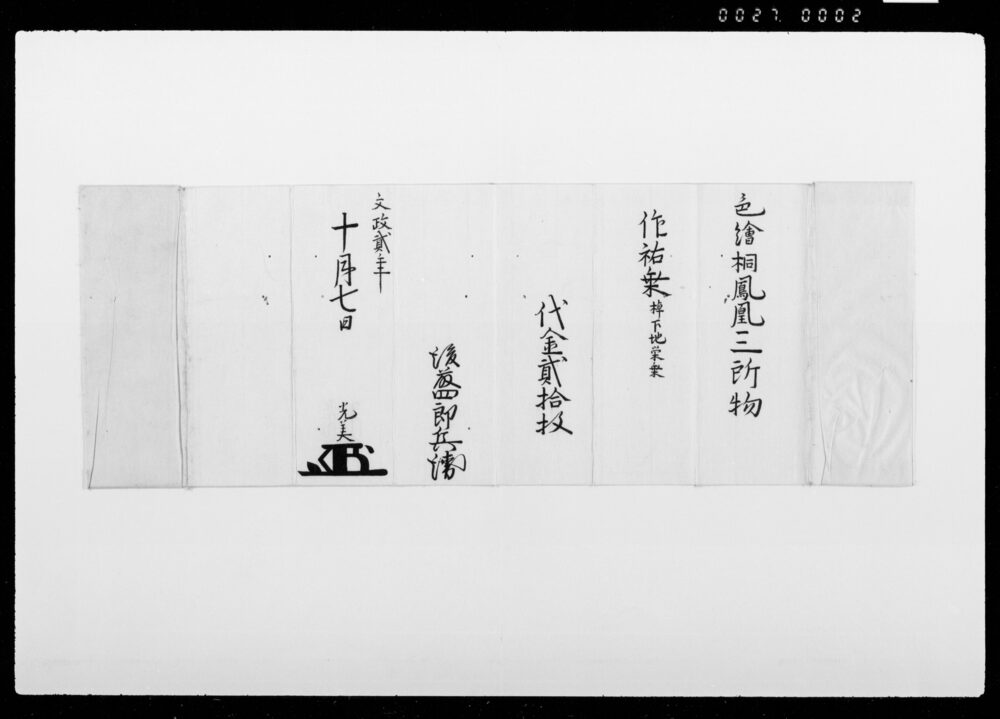 色繪桐鳳凰三所物
作祐乗 棹下地栄乗
代金貳拾枚
後藤四郎兵衛
文政貳年
十月七日
光美
0027 0002